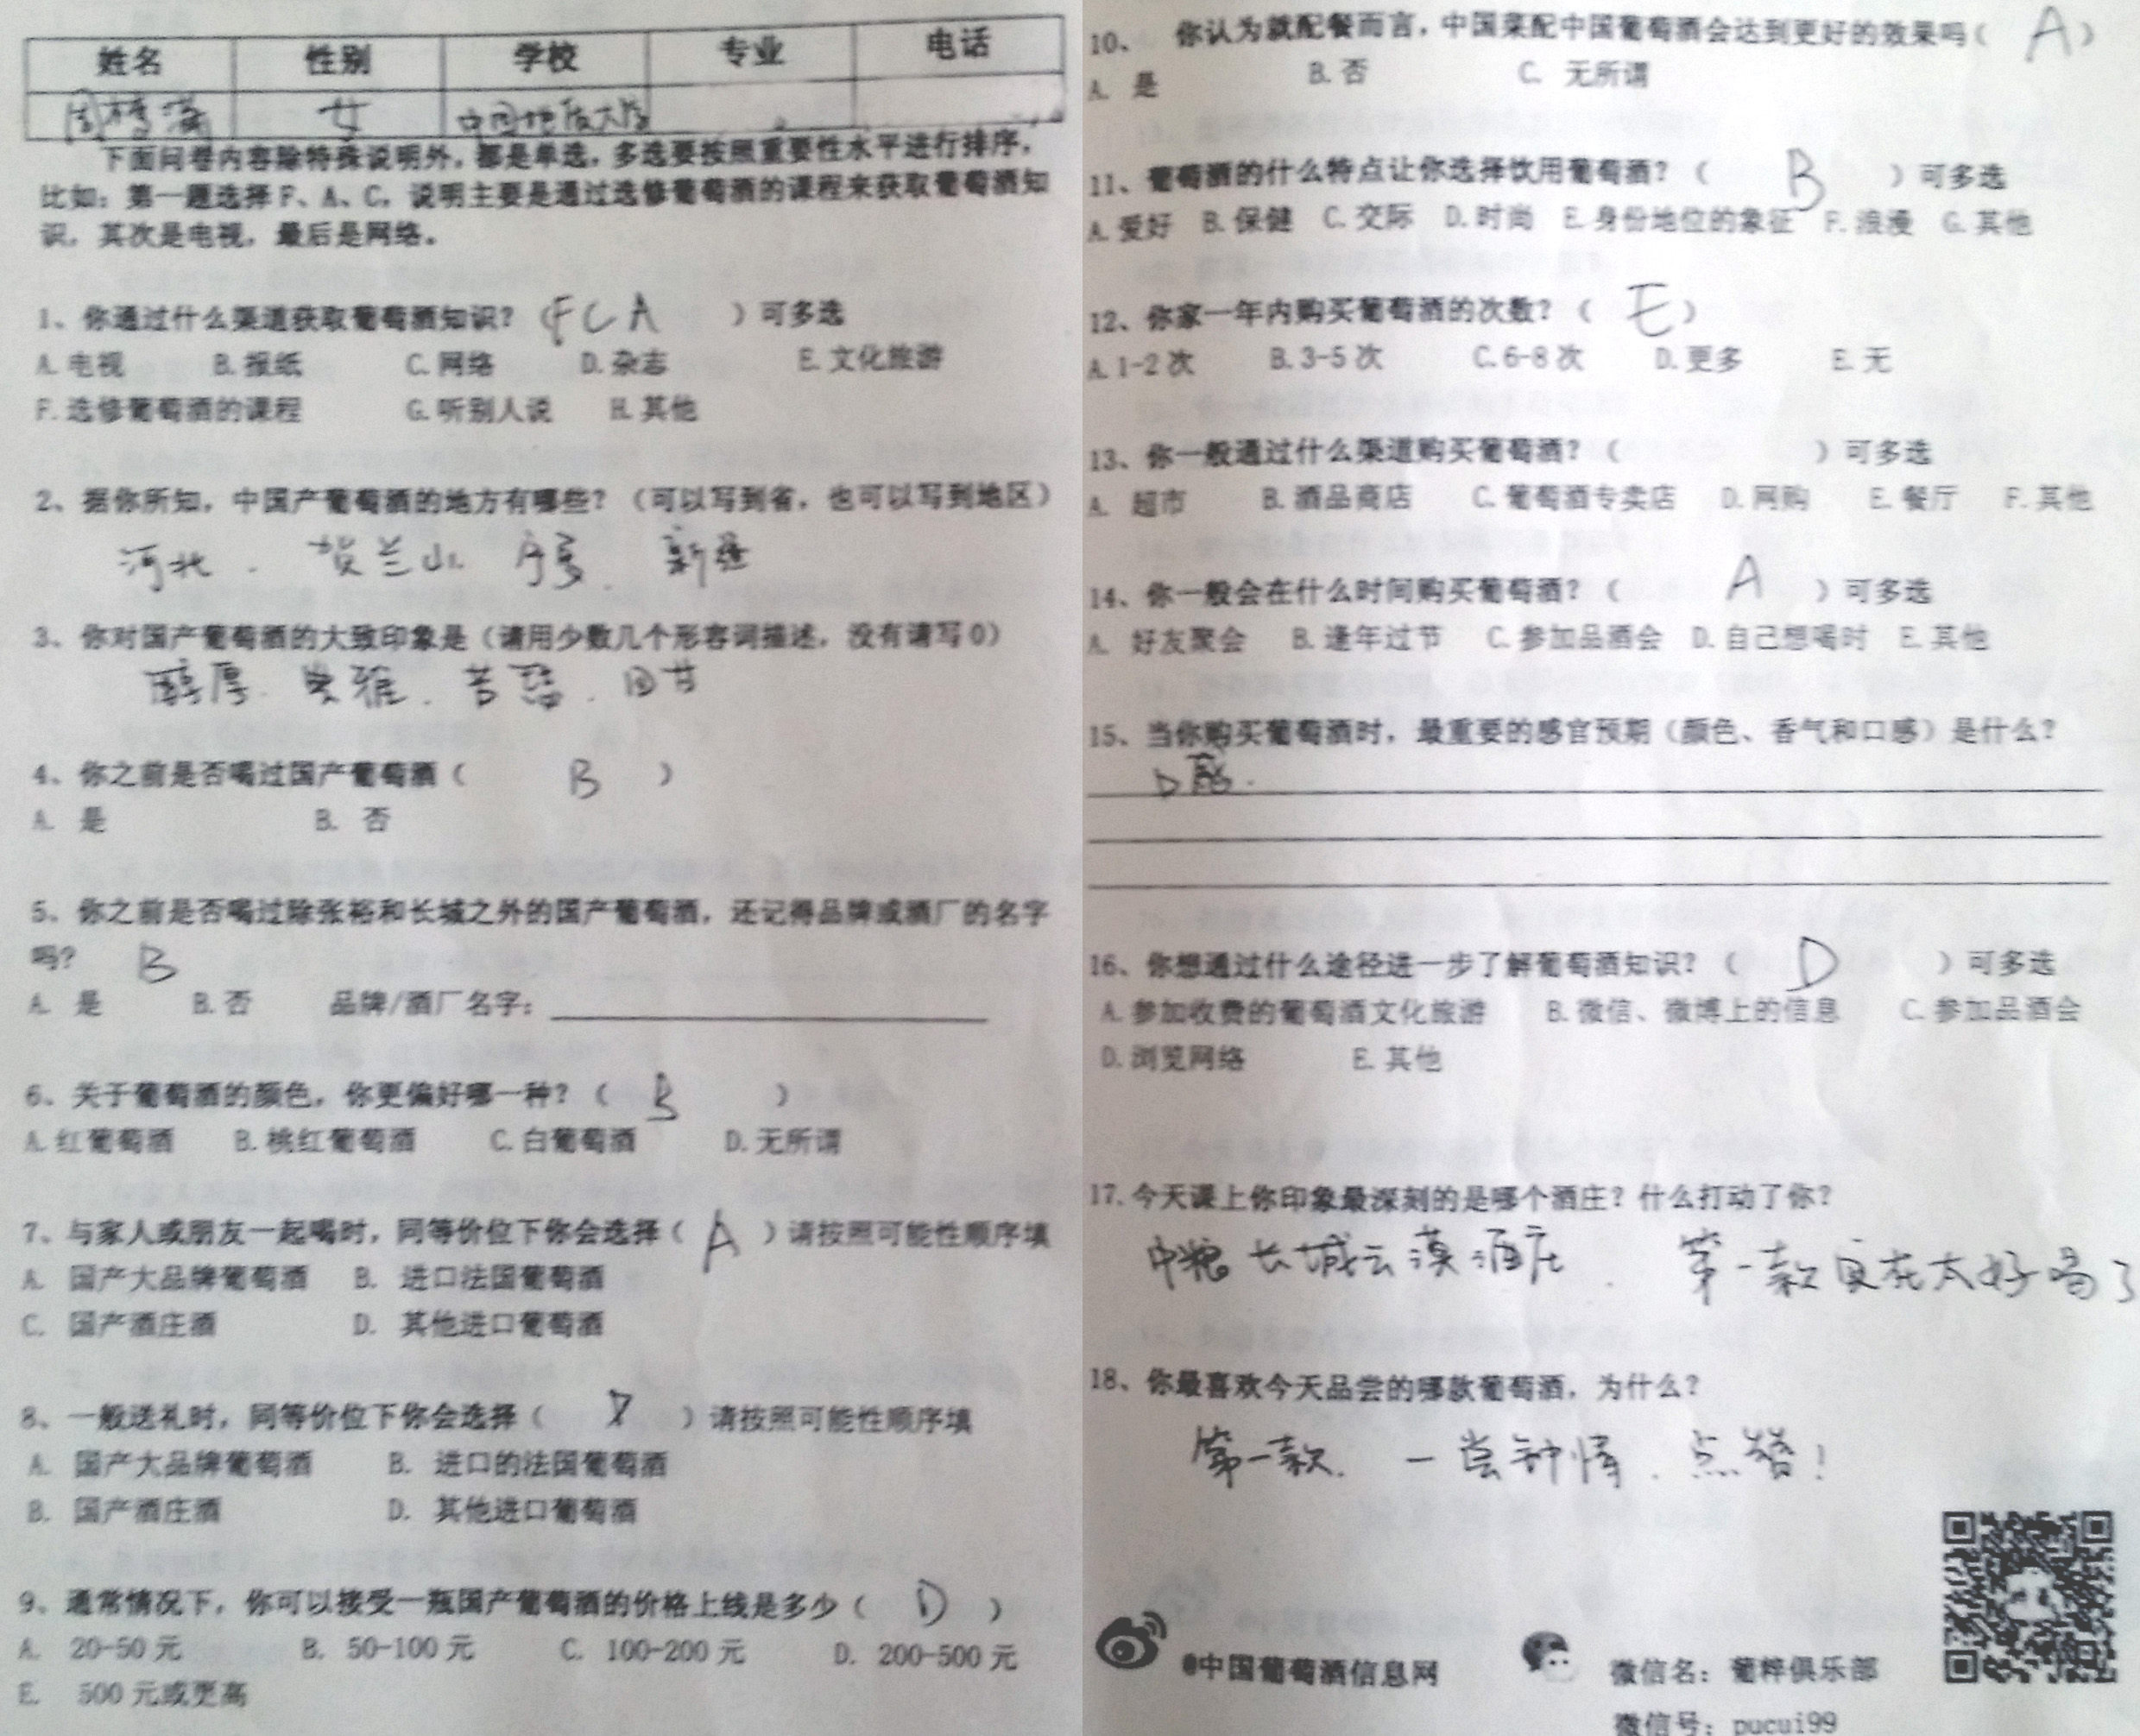 姓名 性别 学校 专业 电话
女 中国地质大学
下面问卷内容除特殊说明外，都是单选，多选要按照重要性水平进行排序，
比如：第一题选择 F、A、C，说明主要是通过选修葡萄酒的课程来获取葡萄酒知
识，其次是电视，最后是网络。
1、你通过什么渠道获取葡萄酒知识？（FCA）可多选
A.电视 B.报纸 C.网络 D.杂志 E.文化旅游
F.选修葡萄酒的课程 G.听别人说 H.其他
2、据你所知，中国产葡萄酒的地方有哪些？（可以写到省，也可以写到地区）
河北. 贺兰山 宁夏. 新疆
3、你对国产葡萄酒的大致印象是（请用少数几个形容词描述，没有请写 0）
醇厚. 典雅. 苦涩. 回甘
4、你之前是否喝过国产葡萄酒（B）
A. 是 B. 否
5、你之前是否喝过除张裕和长城之外的国产葡萄酒，还记得品牌或酒厂的名字
吗？ B
A. 是 B.否 品牌/酒厂名字：
6、关于葡萄酒的颜色，你更偏好哪一种？（B）
A.红葡萄酒 B.桃红葡萄酒 C.白葡萄酒 D.无所谓
7、与家人或朋友一起喝时，同等价位下你会选择（A）请按照可能性顺序填
A. 国产大品牌葡萄酒 B. 进口法国葡萄酒
C. 国产酒庄酒 D. 其他进口葡萄酒
8、一般送礼时，同等价位下你会选择（ ）请按照可能性顺序填
A. 国产大品牌葡萄酒 B. 进口的法国葡萄酒
B. 国产酒庄酒 D. 其他进口葡萄酒
9、通常情况下，你可以接受一瓶国产葡萄酒的价格上线是多少（D）
A. 20-50 元 B. 50-100 元 C. 100-200 元 D. 200-500 元
E. 500 元或更高
10、 你认为就配餐而言，中国菜配中国葡萄酒会达到更好的效果吗（A）
A. 是 B.否 C. 无所谓
11、葡萄酒的什么特点让你选择饮用葡萄酒？（B）可多选
A.爱好 B.保健 C.交际 D.时尚 E.身份地位的象征 F.浪漫 G.其他
12、你家一年内购买葡萄酒的次数？（E）
A.1-2 次 B.3-5 次 C.6-8 次 D.更多 E.无
13、你一般通过什么渠道购买葡萄酒？（ ）可多选
A. 超市 B.酒品商店 C.葡萄酒专卖店 D.网购 E.餐厅 F.其他
14、你一般会在什么时间购买葡萄酒？（A）可多选
A. 好友聚会 B.逢年过节 C.参加品酒会 D.自己想喝时 E.其他
15、当你购买葡萄酒时，最重要的感官预期（颜色、香气和口感）是什么？
口感.
16、你想通过什么途径进一步了解葡萄酒知识？（D）可多选
A.参加收费的葡萄酒文化旅游 B.微信、微博上的信息 C.参加品酒会
D.浏览网络 E.其他
17.今天课上你印象最深刻的是哪个酒庄？什么打动了你？
中粮长城云漠酒庄. 第一款实在太好喝了
18、你最喜欢今天品尝的哪款葡萄酒，为什么？
第一款. 一尝钟情. 点赞！
@中国葡萄酒信息网
微信名：葡粹俱乐部
微信号：pucui99